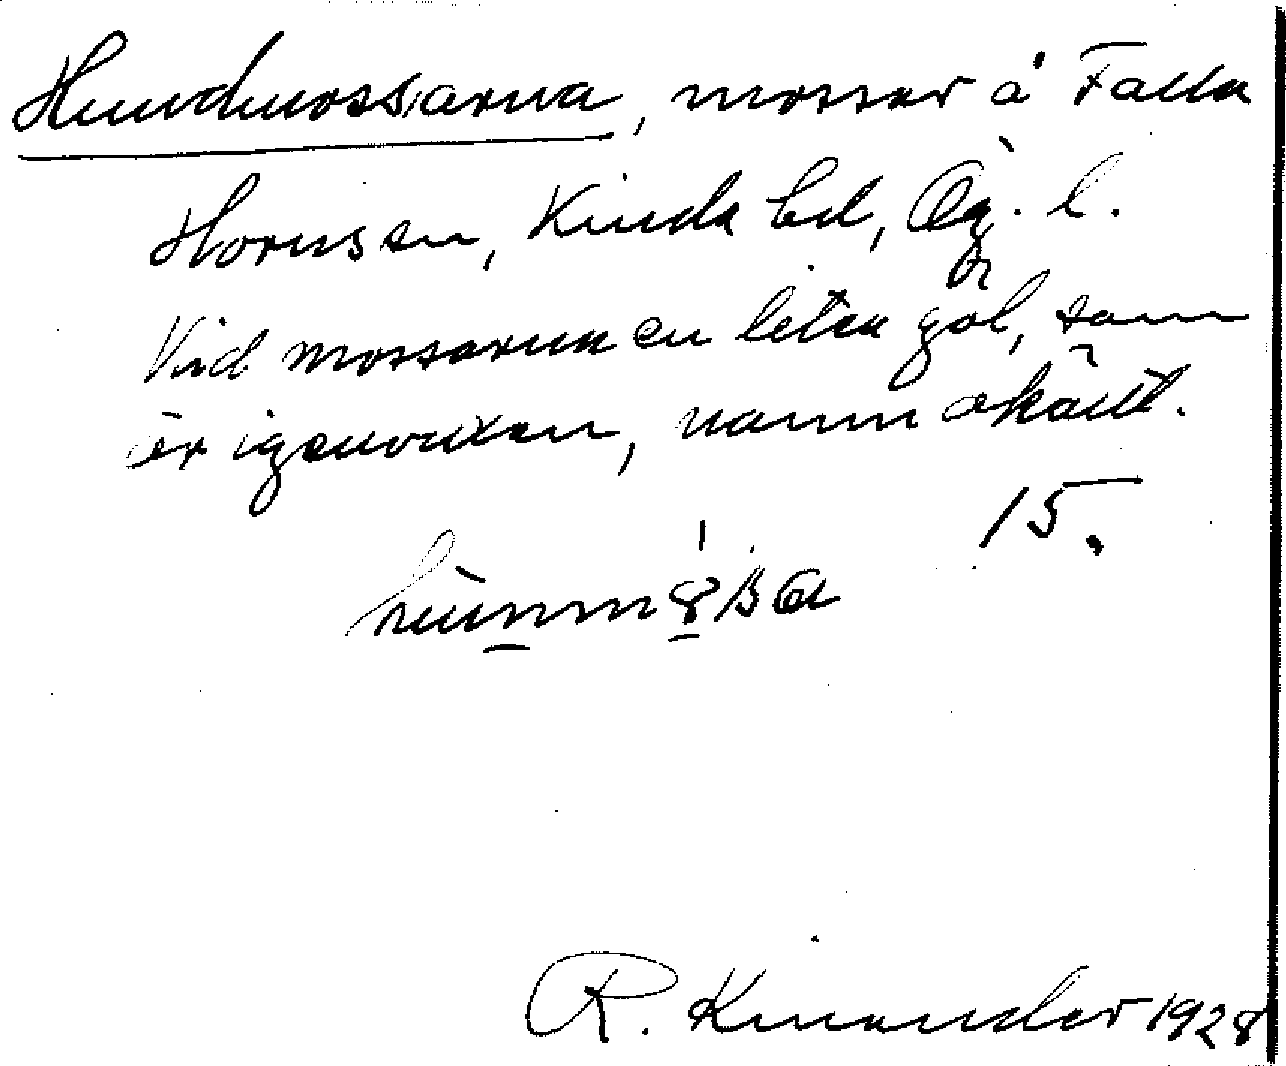 Hundmossarna, mossar å Falla
Horns sn, Kinda hd, Ög. l.
Vid mossarna en liten göl, som
är igenvuxen, namn okänt.
15.
R. Kinander 1928